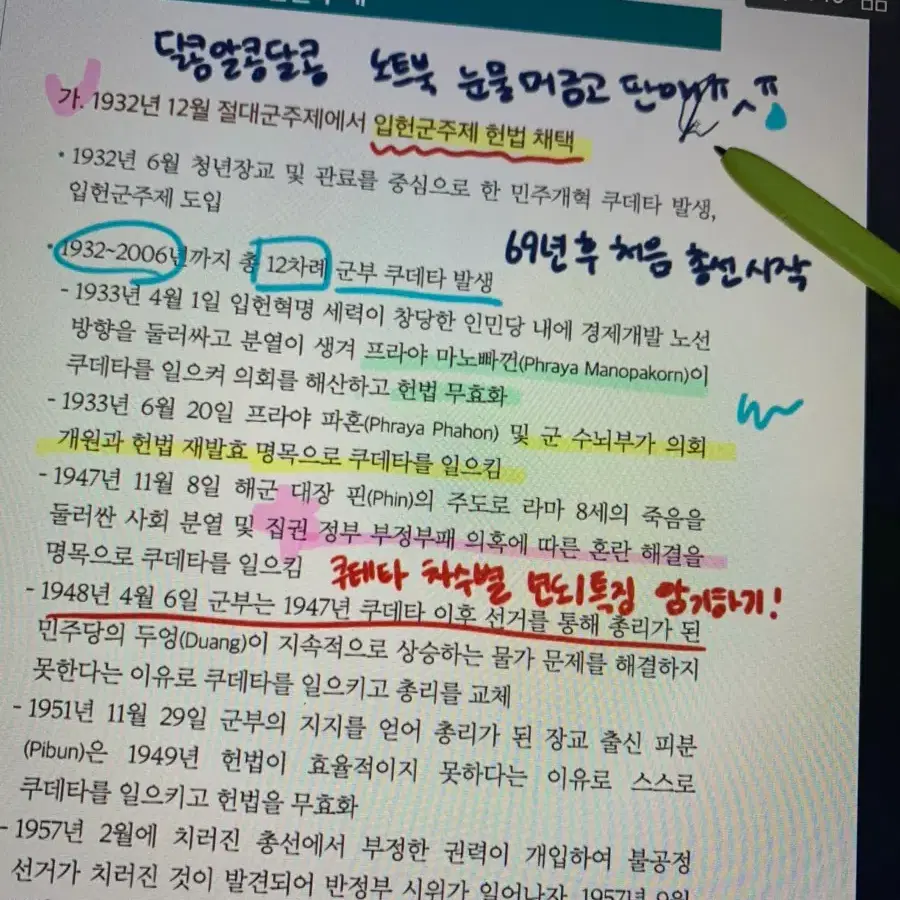 달콩알콩달콩 노트북 눈물머금고 판매ㅠㅅㅠ
가. 1932년 12월 절대군주제에서 입헌군주제 헌법 채택
· 1932년 6월 청년장교 및 관료를 중심으로 한 민주개혁 쿠데타 발생,
입헌군주제 도입
69년 후 처음 총선시작
· 1932~2006년까지 총 12차례 군부 쿠데타 발생
- 1933년 4월 1일 입헌혁명 세력이 창당한 인민당 내에 경제개발 노선
방향을 둘러싸고 분열이 생겨 프라야 마노빠껀(Phraya Manopakorn)이
쿠데타를 일으켜 의회를 해산하고 헌법 무효화
- 1933년 6월 20일 프라야 파혼(Phraya Phahon) 및 군 수뇌부가 의회
개원과 헌법 재발효 명목으로 쿠데타를 일으킴
- 1947년 11월 8일 해군 대장 핀(Phin)의 주도로 라마 8세의 죽음을
둘러싼 사회 분열 및 집권 정부 부정부패 의혹에 따른 혼란 해결을
명목으로 쿠데타를 일으킴
쿠테타 차수별 년도/특징 암기하기!
- 1948년 4월 6일 군부는 1947년 쿠데타 이후 선거를 통해 총리가 된
민주당의 두엉(Duang)이 지속적으로 상승하는 물가 문제를 해결하지
못한다는 이유로 쿠데타를 일으키고 총리를 교체
- 1951년 11월 29일 군부의 지지를 얻어 총리가 된 장교 출신 피분
(Pibun)은 1949년 헌법이 효율적이지 못하다는 이유로 스스로
쿠데타를 일으키고 헌법을 무효화
- 1957년 2월에 치러진 총선에서 부정한 권력이 개입하여 불공정
선거가 치러진 것이 발견되어 반정부 시위가 일어나자 1957년 9월